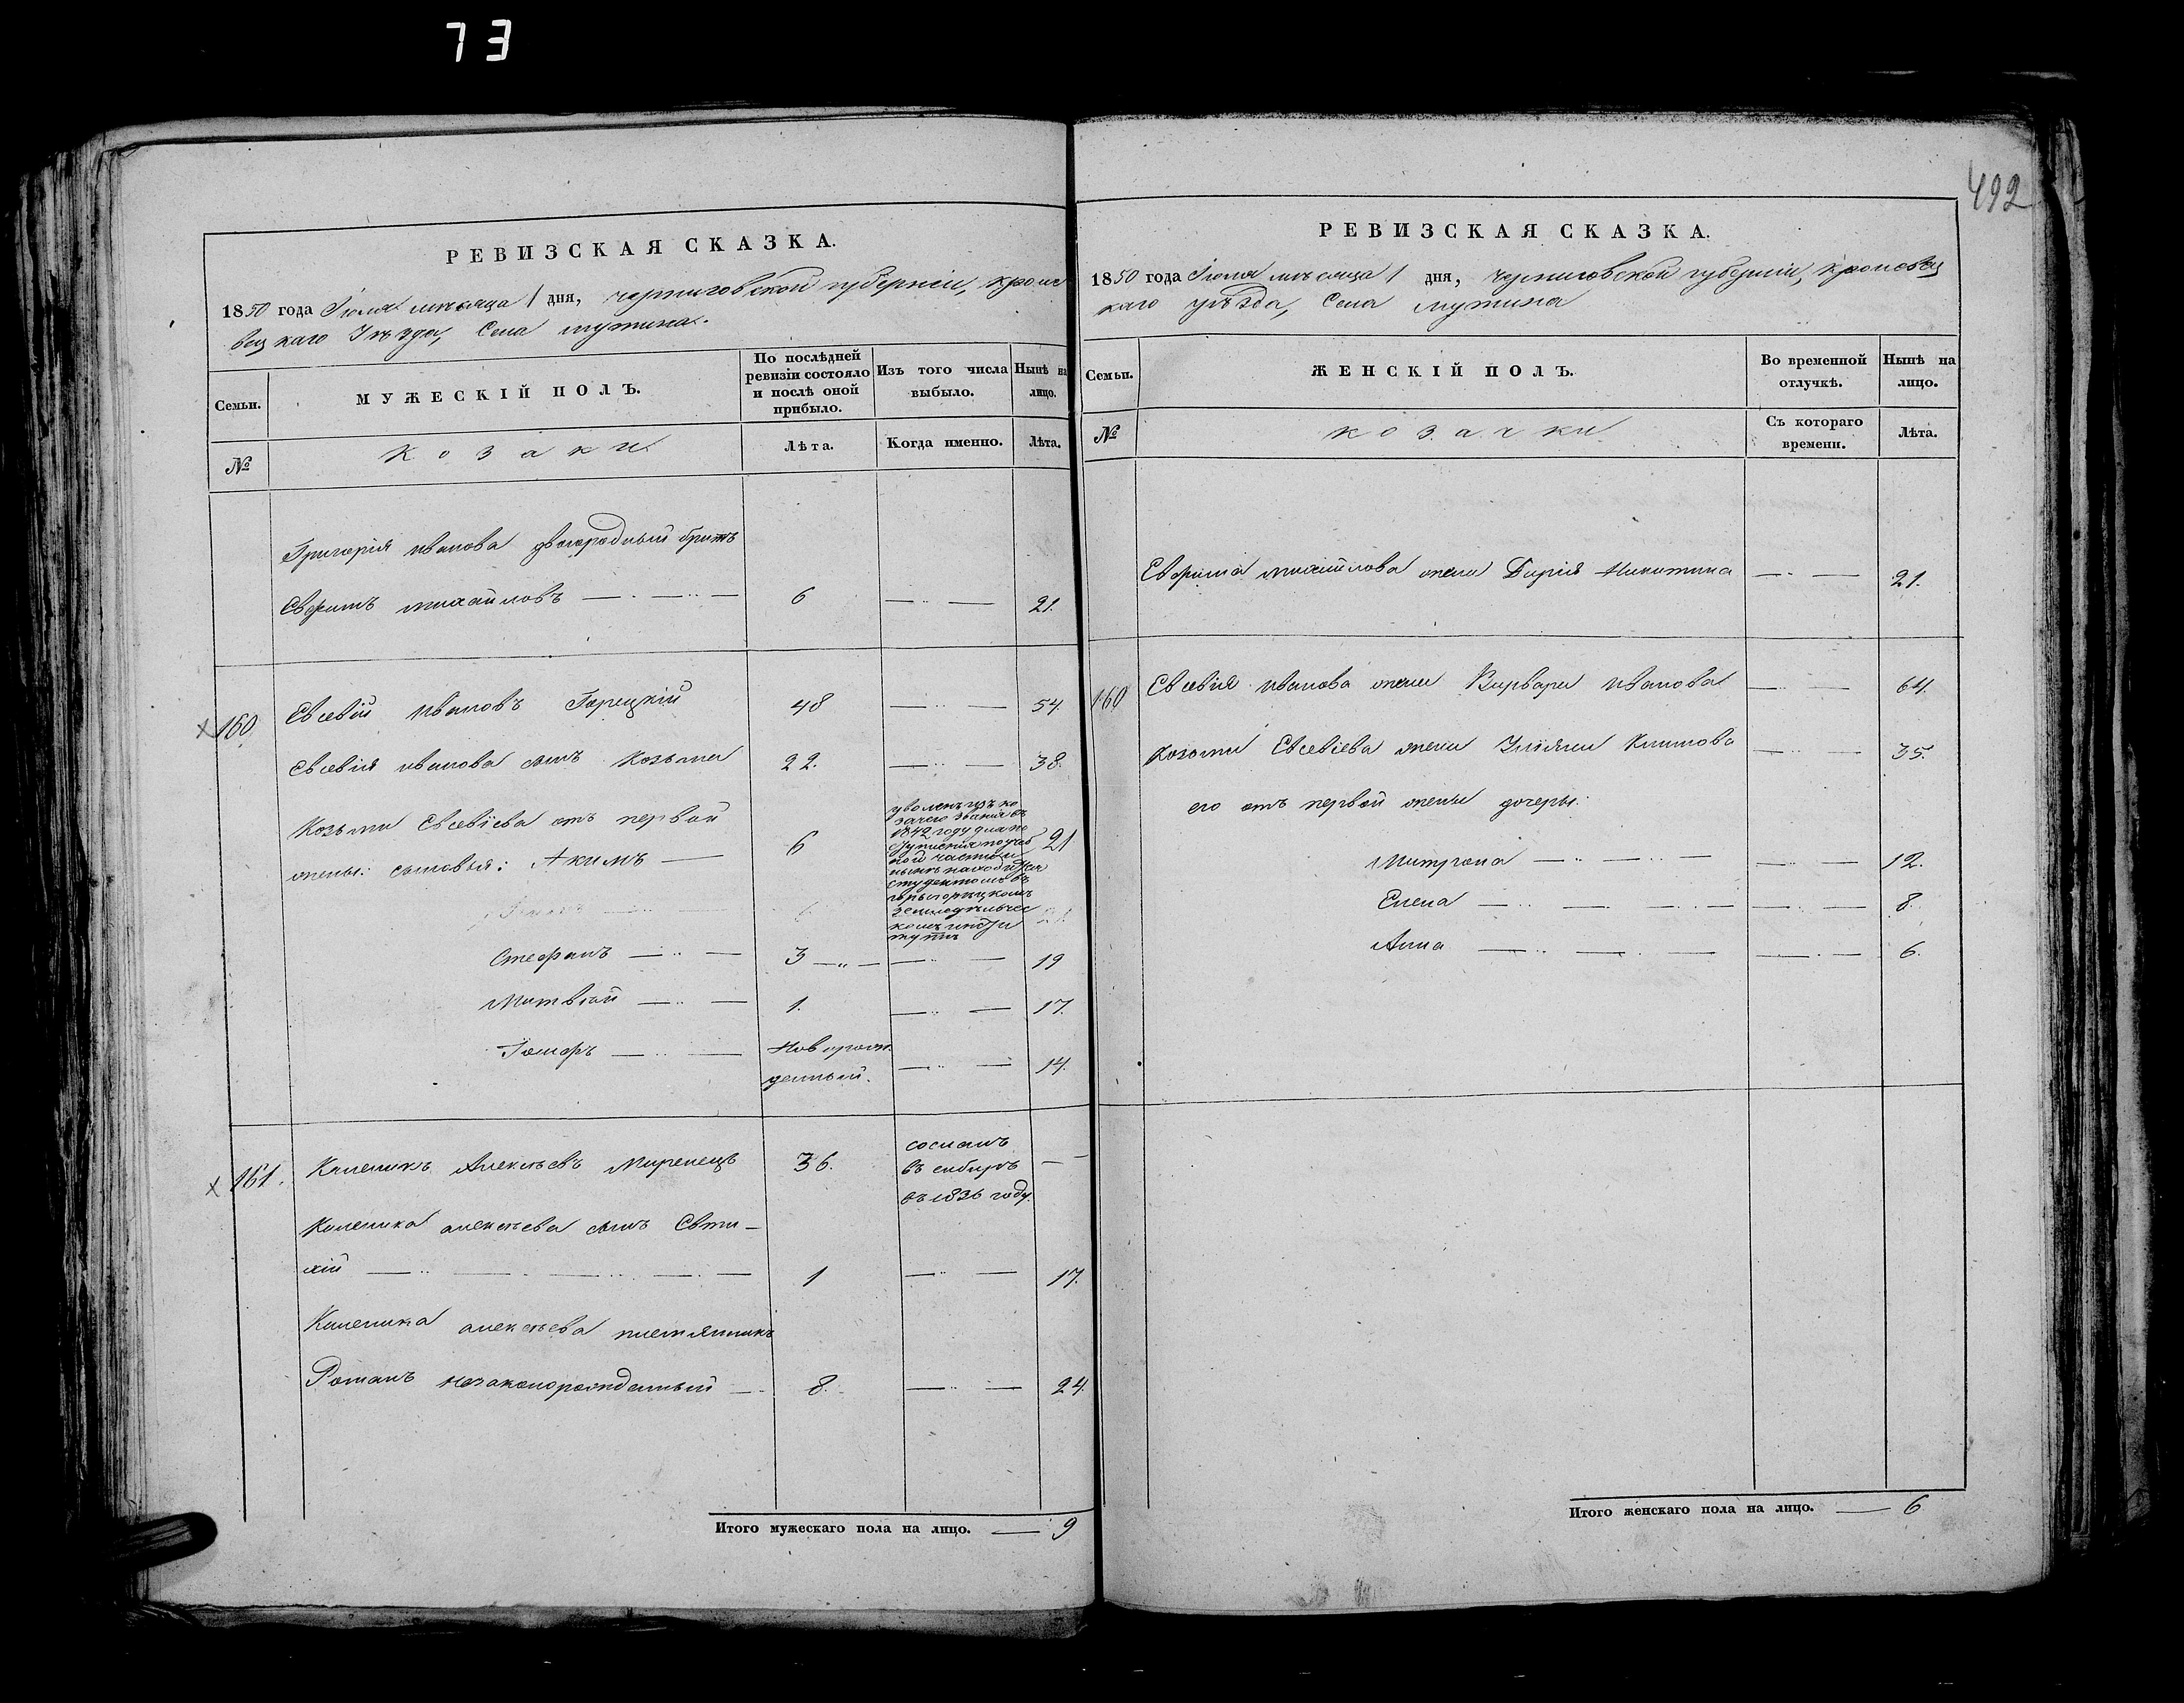 73
492
РЕВИЗСКАЯ СКАЗКА.
1850 года Июля месяца 1 дня, Черниговской губерніи, Кроле
вецкаго Уѣзда, Села Мутина.
Семьи.
МУЖЕСКІЙ ПОЛЪ.
По послѣдней ревизіи состояло и послѣ оной прибыло.
Изъ того числа выбыло.
Нынѣ на лицо.
№
Козаки
Лѣта.
Когда именно.
Лѣта.
Григорія Иванова двоюродный братъ
Евфимъ Михайловъ 6 21.
160 Евсевій Ивановъ Горецкій 48 54.
Евсевія Иванова сынъ Козьма 22. 38.
Козьмы Евсевіева отъ первой
жены: сыновья: Акимъ 6 21
уволенъ изъ ко
зачьго званія въ
1842 году для по
ступленія по учеб
ной части и
нынѣ находится
студентомъ въ
горыгорецкомъ
земледѣльчес
комъ инсти
тутѣ
Стефанъ 3 19
Матвѣй 1. 17.
Іосифъ Новорож
денный. 14.
161. Калеников Алексѣевъ Миренецъ 36.
сосланъ
въ сибирь
въ 1836 году.
Каленика алексѣева сынъ Евти-
хій 1 17.
Каленика алексѣева племянникъ
Романъ незаконорожденный 8. 24.
Итого мужескаго пола на лицо. 9
РЕВИЗСКАЯ СКАЗКА.
1850 года Июля месяца 1 дня, Черниговской губерніи, Кролевец
каго уѣзда, Села Мутина
Семьи.
ЖЕНСКІЙ ПОЛЪ.
Во временной отлучкѣ.
Нынѣ на лицо.
№
козачки
Съ котораго времени.
Лѣта.
Евфима Михайлова жена Дарія Никитина 21.
160 Евсевія Иванова жена Варвара Иванова 64.
Козьмы Евсевіева жена Уліяна Климова 35.
его отъ первой жены дочери:
Митрона 12.
Елена 8.
Анна 6.
Итого женскаго пола на лицо. 6